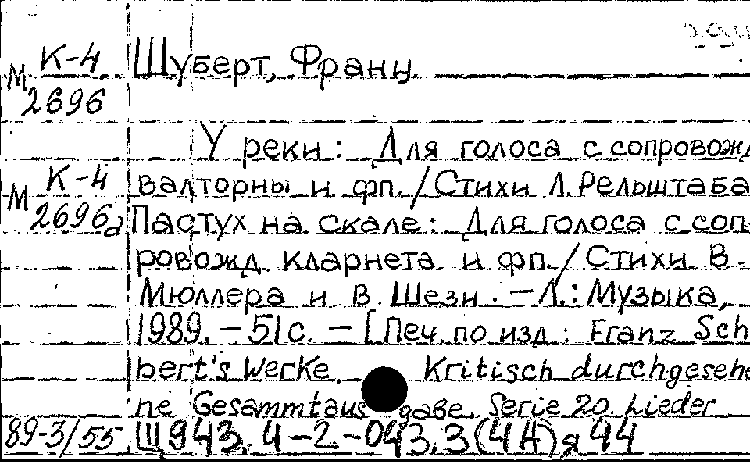 М К-4 Шуберт, Франц
2696
У реки: Для голоса с сопровожд
М К-4 валторны и фп. / Стихи Л. Рельштаба
2696а Пастух на скале: Для голоса с соп-
ровожд. кларнета и фп. / Стихи В.
Мюллера и В. Шези. - Л.: Музыка,
1989. - 51 с. - [Печ. по изд.: Franz Sch
bert's Werke. Kritisch durchgesehe
ne Gesammtausgabe. Serie 20 Lieder
89-3/55 Щ943.4-2-043.3(4А)я44